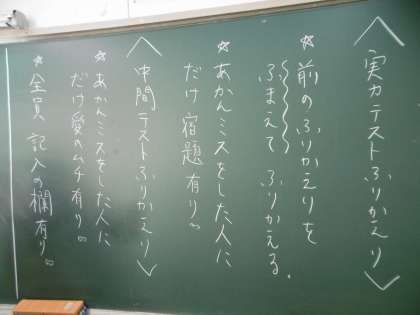 〈実力テストふりかえり〉
☆前のふりかえりを
ふまえて ふりかえる。
☆あかんミスをした人に
だけ宿題有り。
〈中間テストふりかえり〉
☆あかんミスをした人に
だけ愛のムチ有り。
☆全員 記入の欄有り。